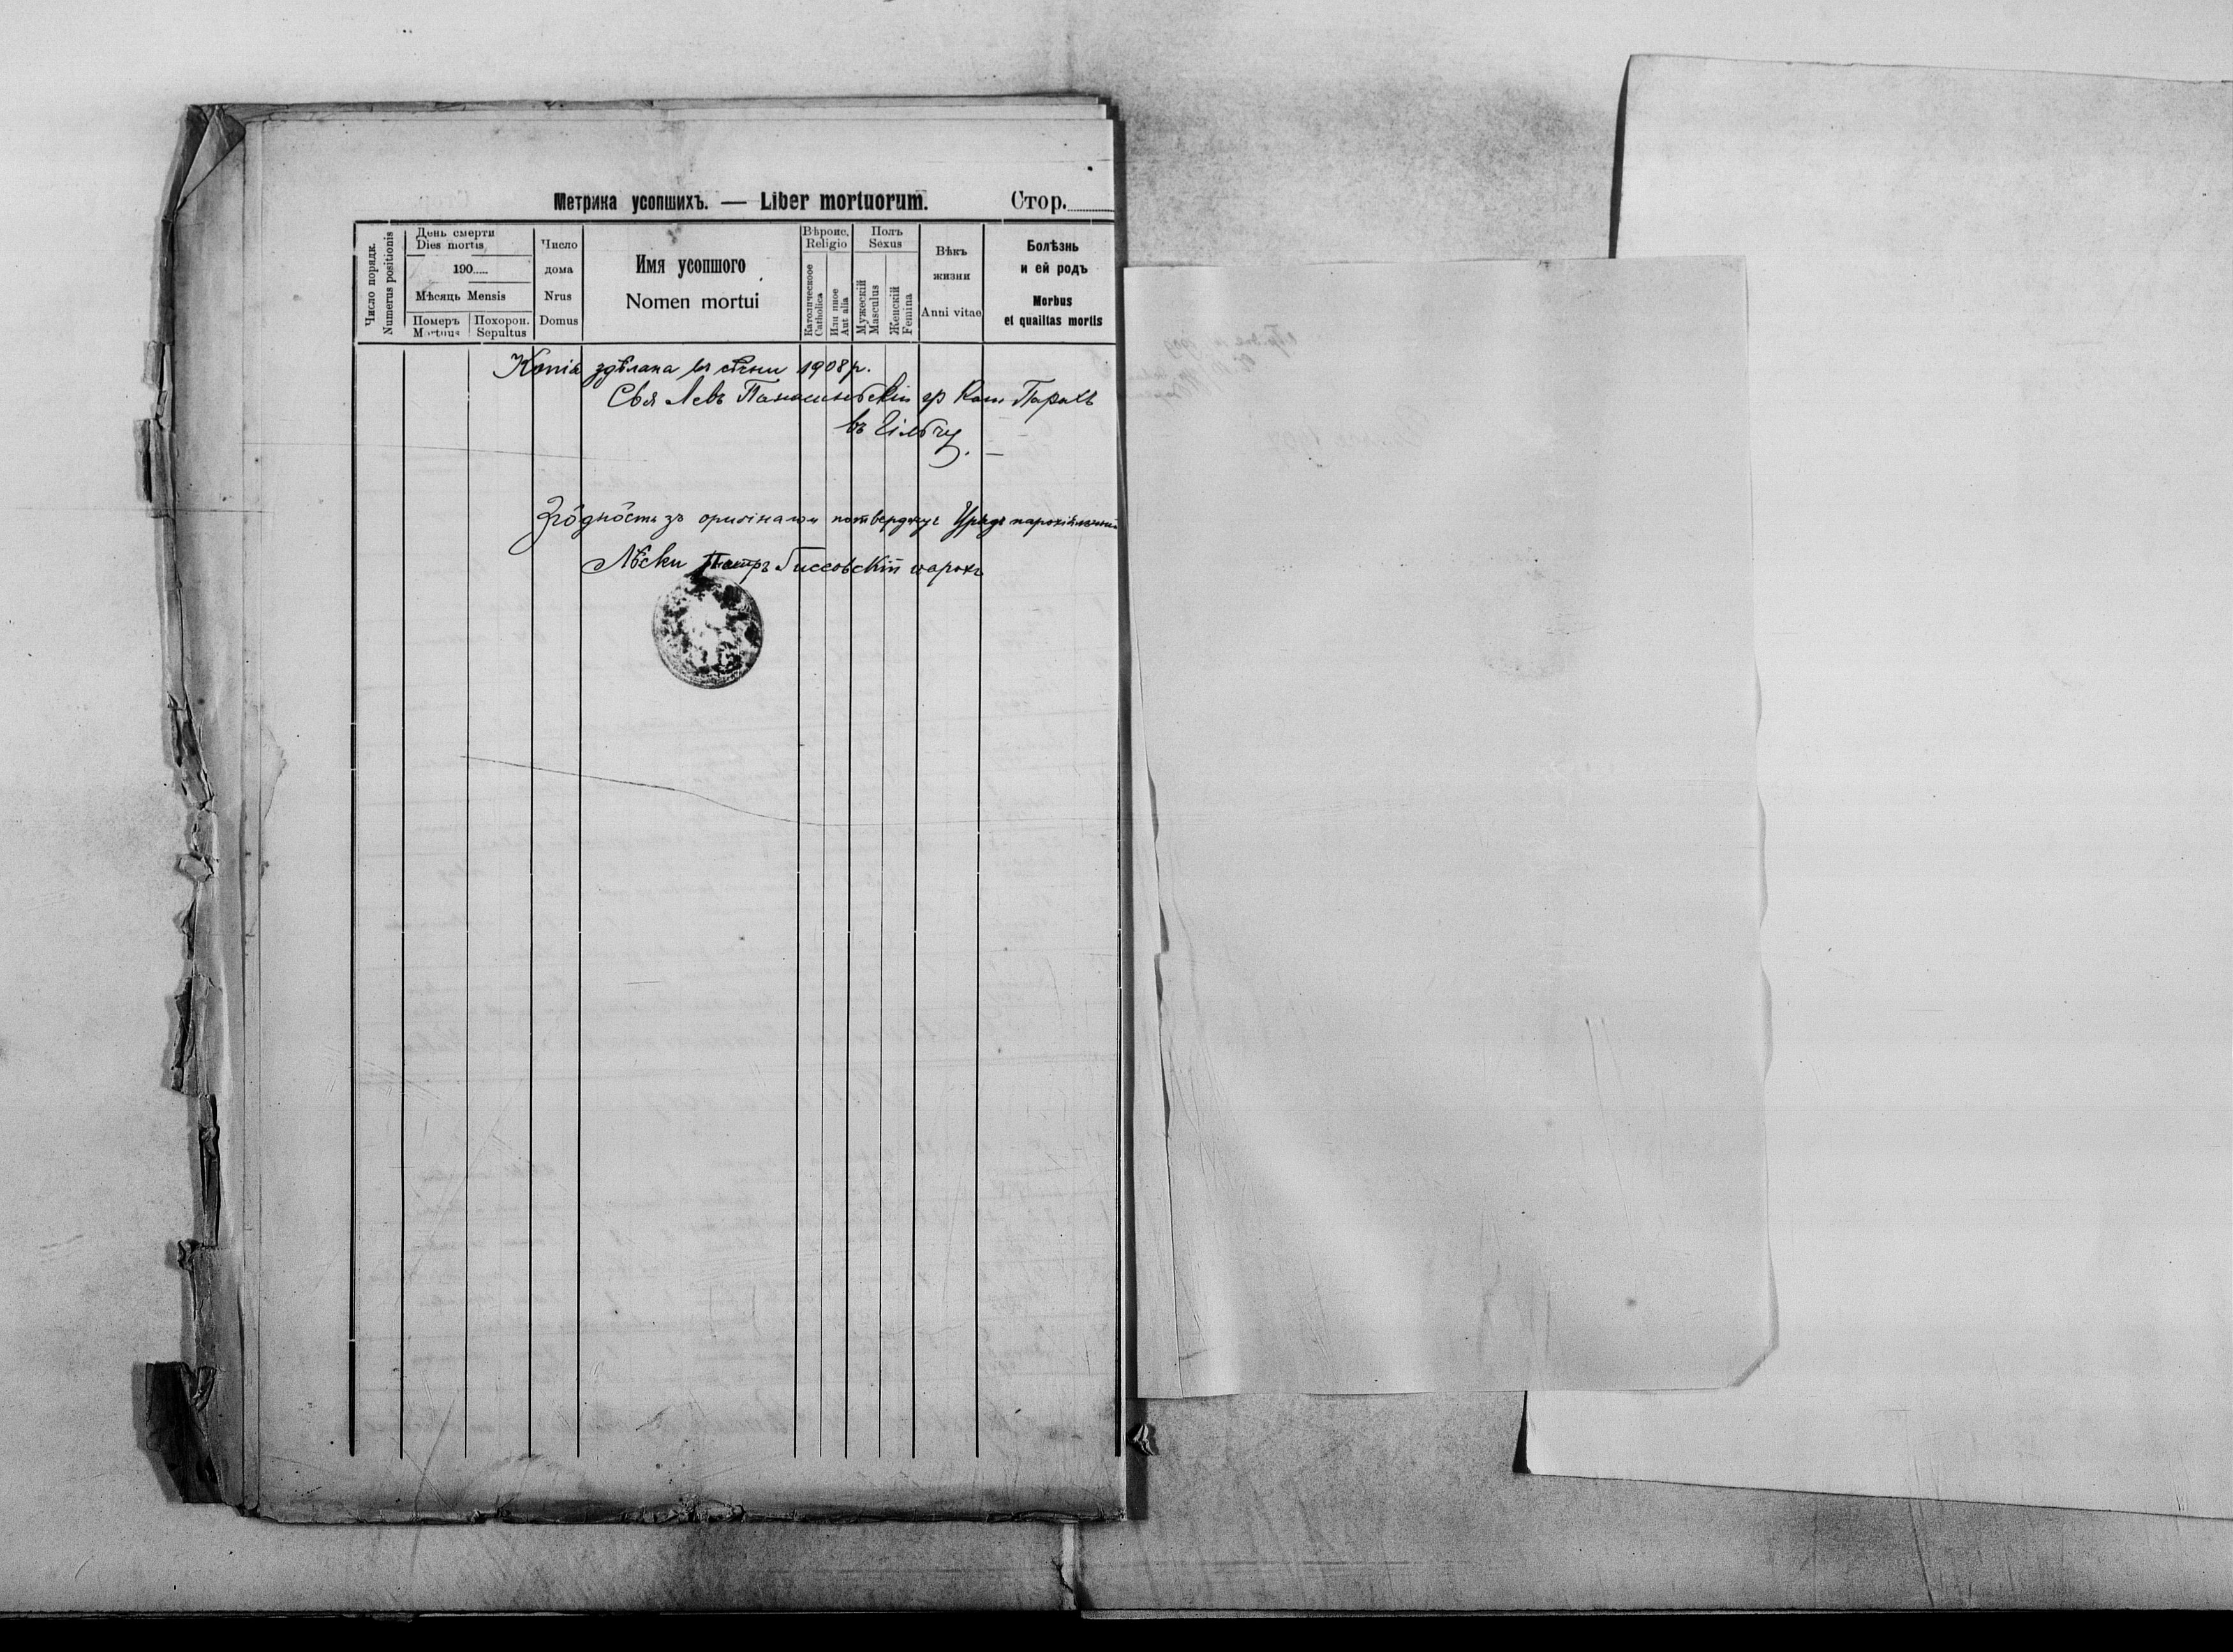 Метрика усопшихъ. — Liber mortuorum. Стор.
Число порядк.
Numerus positionis
День смерти
Dies mortis
190
Мѣсяць Mensis
Померъ
Mortuus
Похорон.
Sepultus
Число
дома
Nrus
Domus
Имя усопшого
Nomen mortui
Вѣроис.
Religio
Католическоое
Catholica
Или нное
Aut alia
Полъ
Sexus
Мужескій
Masculus
Женскій
Femina
Вѣкъ
жизни
Anni vitae
Болѣзнь
и ей родъ
Morbus
et qualitas mortis
Копія здѣлана въ сѣчни 1908 р.
Свя Левъ гр Кат Парохъ
въ
Зго̂дно̂сть зъ оригіналом потверджує Урядъ парохіяльний
Лѣски Петръ парохъ